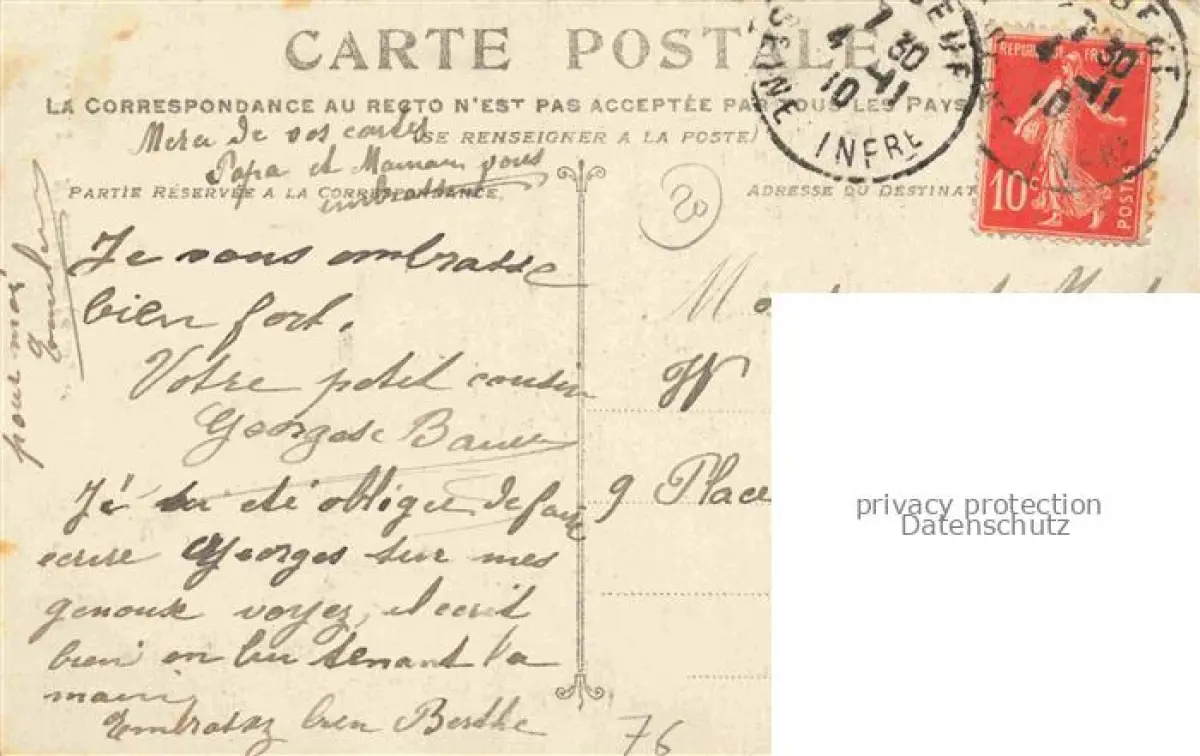 CARTE POSTALE
LA CORRESPONDANCE AU RECTO N'EST PAS ACCEPTÉE PAR TOUS LES PAYS
(SE RENSEIGNER A LA POSTE)
Merci de vos cartes
Papa et Maman vous
embrassent
PARTIE RÉSERVÉE A LA CORRESPONDANCE
ADRESSE DU DESTINAT
20
Je vous embrasse
bien fort.
Votre petit cousin
Georges
J'é été obligée de faire
ecrire Georges sur mes
genoux voyez, il ecrit
bien en lui tenant la
main
Embrassez bien Berthe
pour moi
M
9 Place
76
7 30
4 - 11
10
SEINE INFRE
7 30
4 - 11
10
INFRE
REPUBLIQUE FRANCAISE
10c
POSTES
privacy protection
Datenschutz